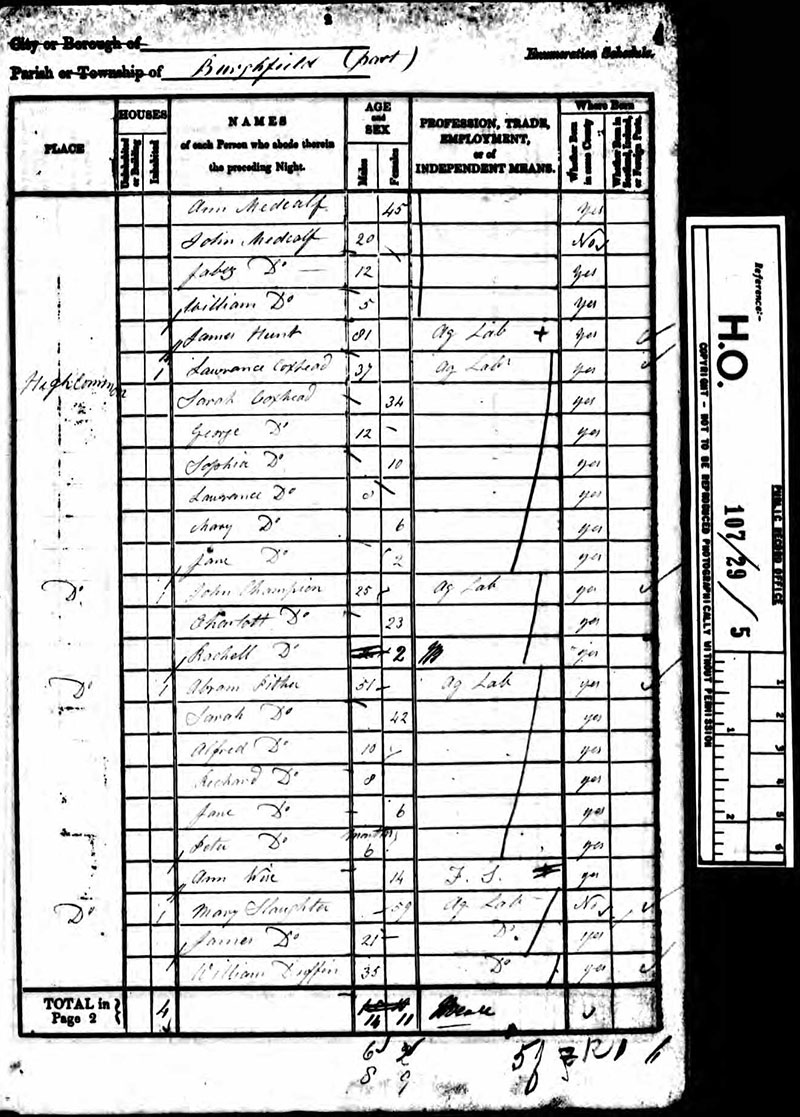 2
City or Borough of
Parish or Township of Burghfield (part)
Enumeration Schedule.
PLACE
HOUSES
Uninhabited or Building
Inhabited
NAMES
of each Person who abode therein
the preceding Night.
AGE
and
SEX
Males
Females
PROFESSION, TRADE,
EMPLOYMENT,
or of
INDEPENDENT MEANS.
Where Born
Whether Born in same County
Whether Born in Scotland, Ireland, or Foreign Parts.
Ann Medcalf 45 yes
John Medcalf 20 No
Jabez Do 12 yes
William Do 5 yes
James Hunt 81 Ag Lab + yes
Highcommon 1 Lawrance Coxhead 37 Ag Lab yes
Sarah Coxhead 34 yes
George Do 12 yes
Sophia Do 10 yes
Lawrance Do 8 yes
Mary Do 6 yes
Jane Do 2 yes
Do 1 John Champion 25 Ag Lab yes
Charlott Do 23 yes
Rachell Do 2 yes
Do 1 Abram Pither 51 Ag Lab yes
Sarah Do 42 yes
Alfred Do 10 yes
Richard Do 8 yes
Jane Do 6 yes
Peter Do months 6 yes
Ann 14 F. S. yes
Do 1 Mary Slaughter 59 Ag Lab No
James Do 21 Do yes
William Duffin 35 Do yes
TOTAL in Page 2 4 14 11
6 2
8 9
Reference:-
H.O. 107/29/5
PUBLIC RECORD OFFICE
COPYRIGHT - NOT TO BE REPRODUCED PHOTOGRAPHICALLY WITHOUT PERMISSION
1 2 3 4 5 6
1 2